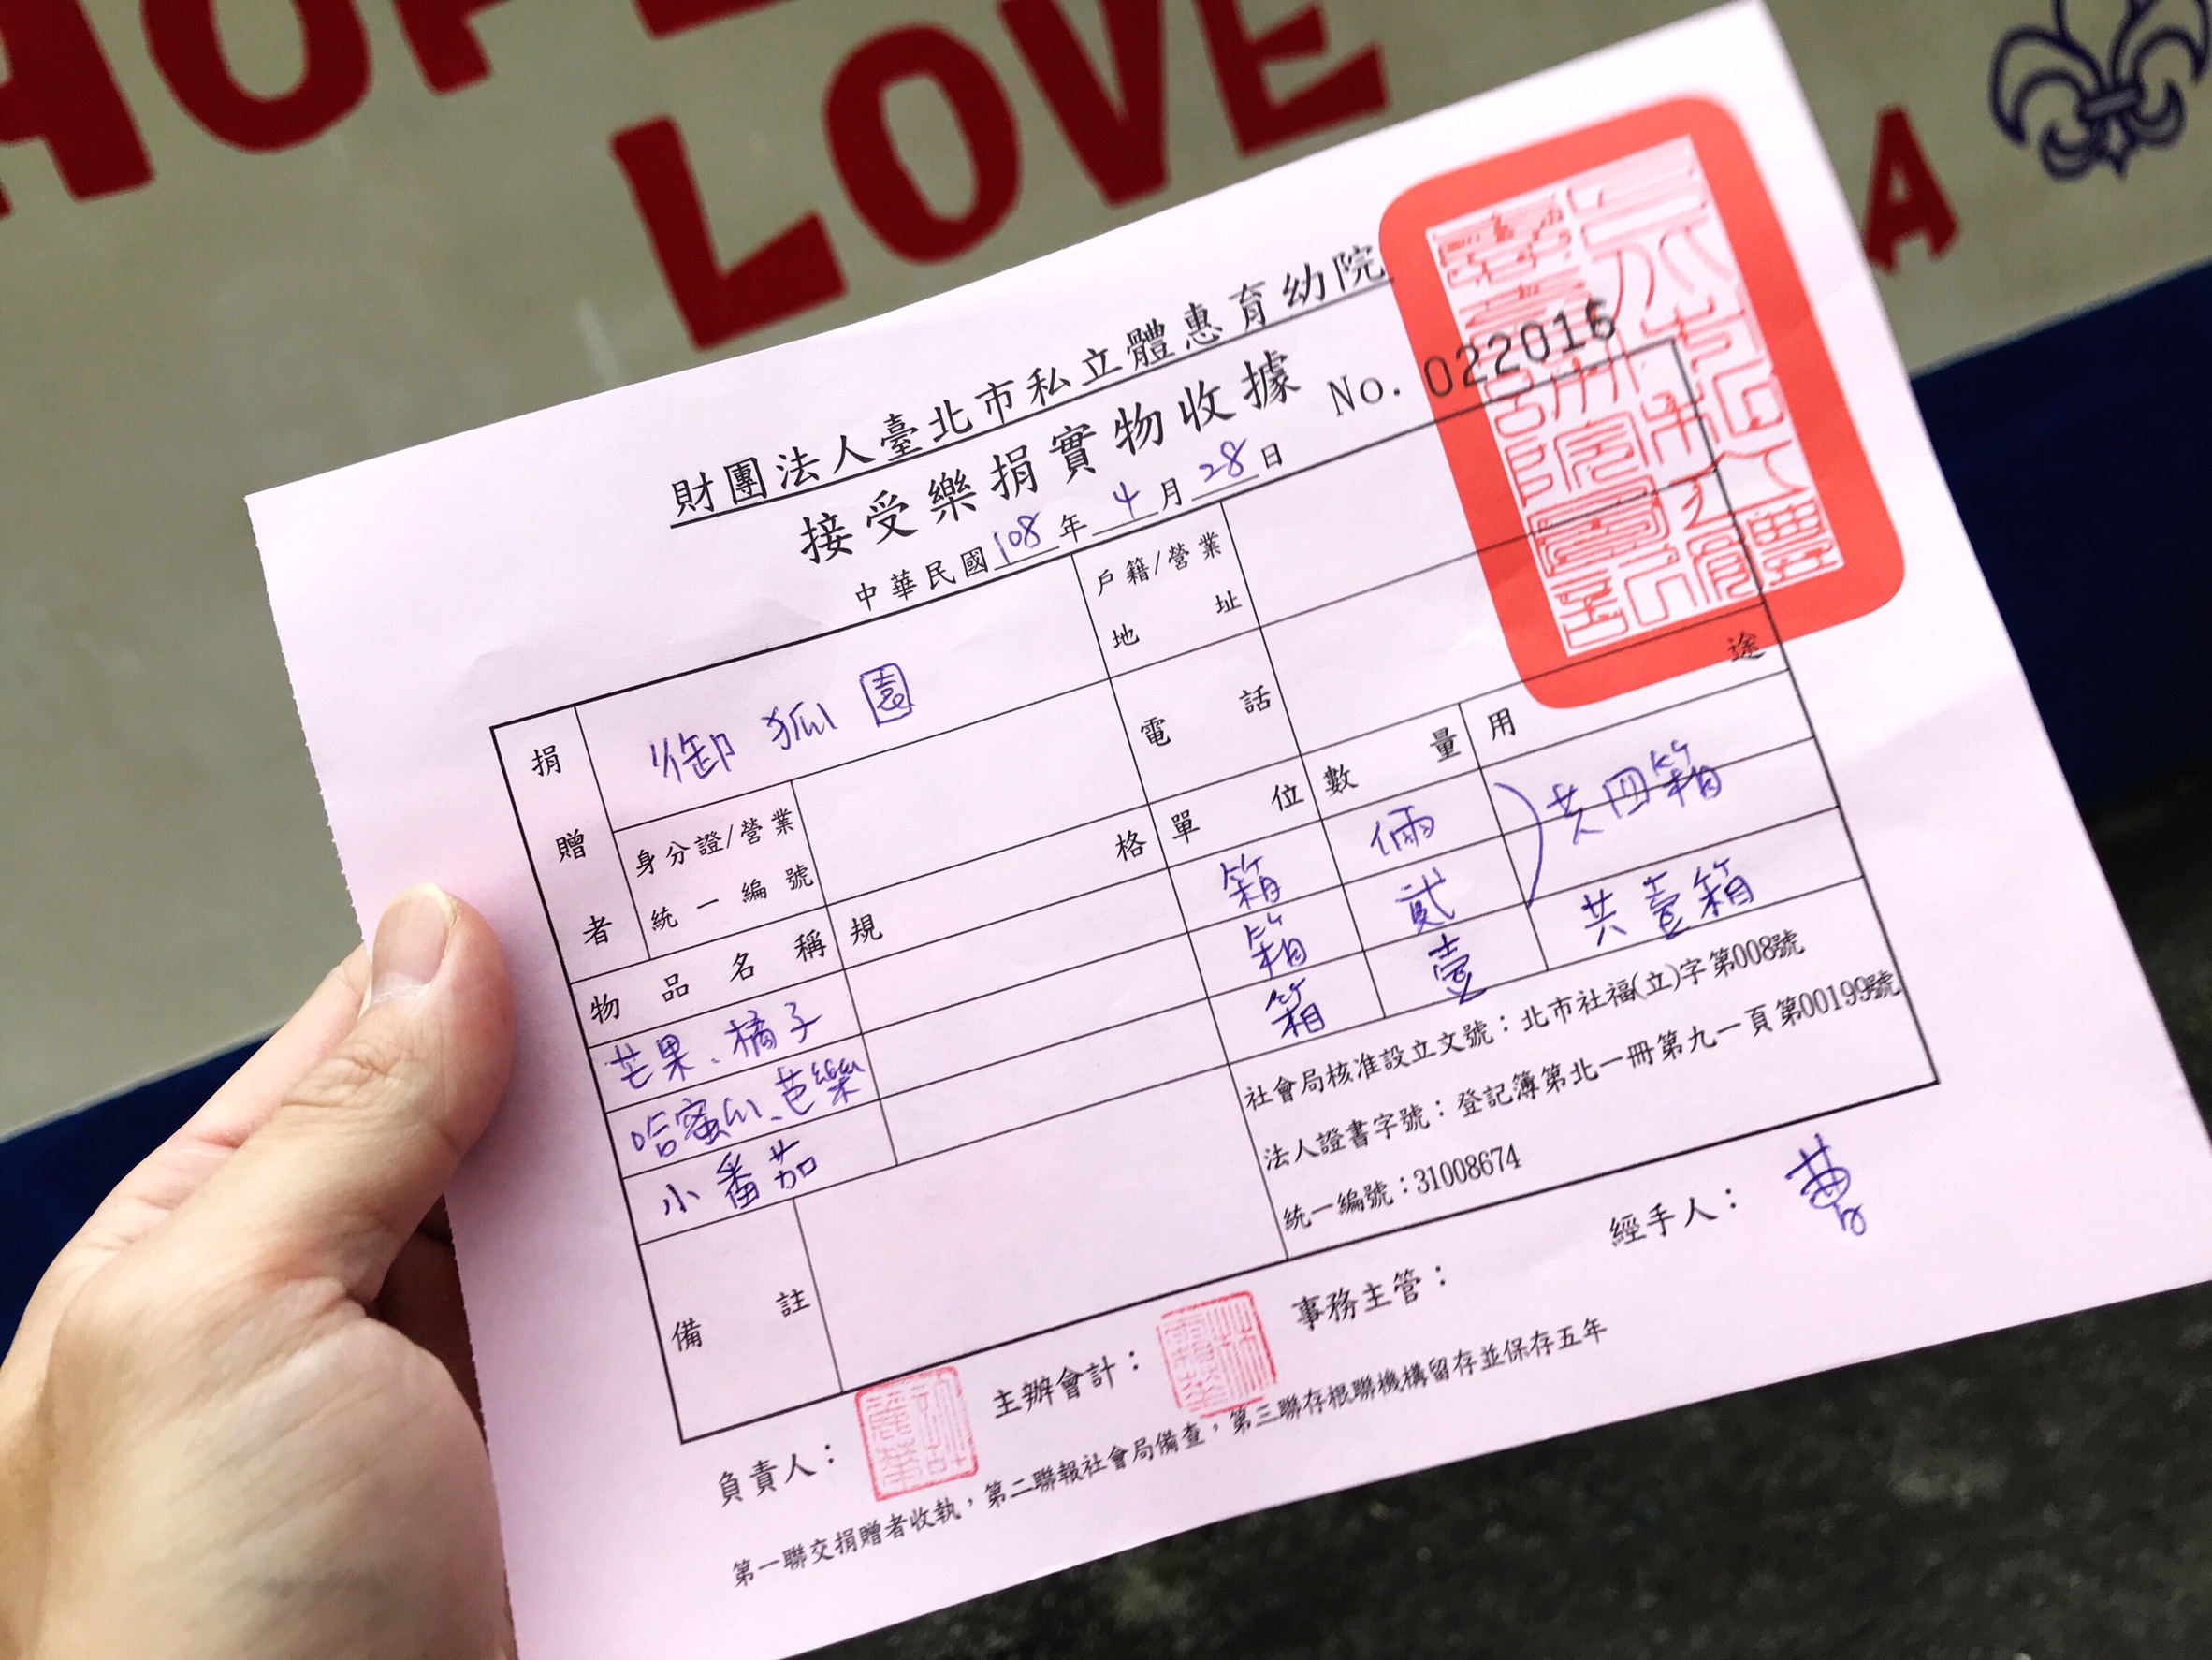 LOVE
A
財團法人臺北市私立體惠育幼院
接受樂捐實物收據 No. 022016
中華民國108年4月28日
捐贈者 御狐園 戶籍/營業地址
身分證/營業統一編號 電話
物品名稱 規格 單位 數量 用途
芒果、橘子 箱 倆 共四箱
哈蜜瓜、芭樂 箱 貳
小番茄 箱 壹 共壹箱
備註
社會局核准設立文號：北市社福(立)字第008號
法人證書字號：登記簿第北一冊第九一頁第00199號
統一編號：31008674
負責人： 主辦會計： 事務主管： 經手人：
第一聯交捐贈者收執，第二聯報社會局備查，第三聯存根聯機構留存並保存五年